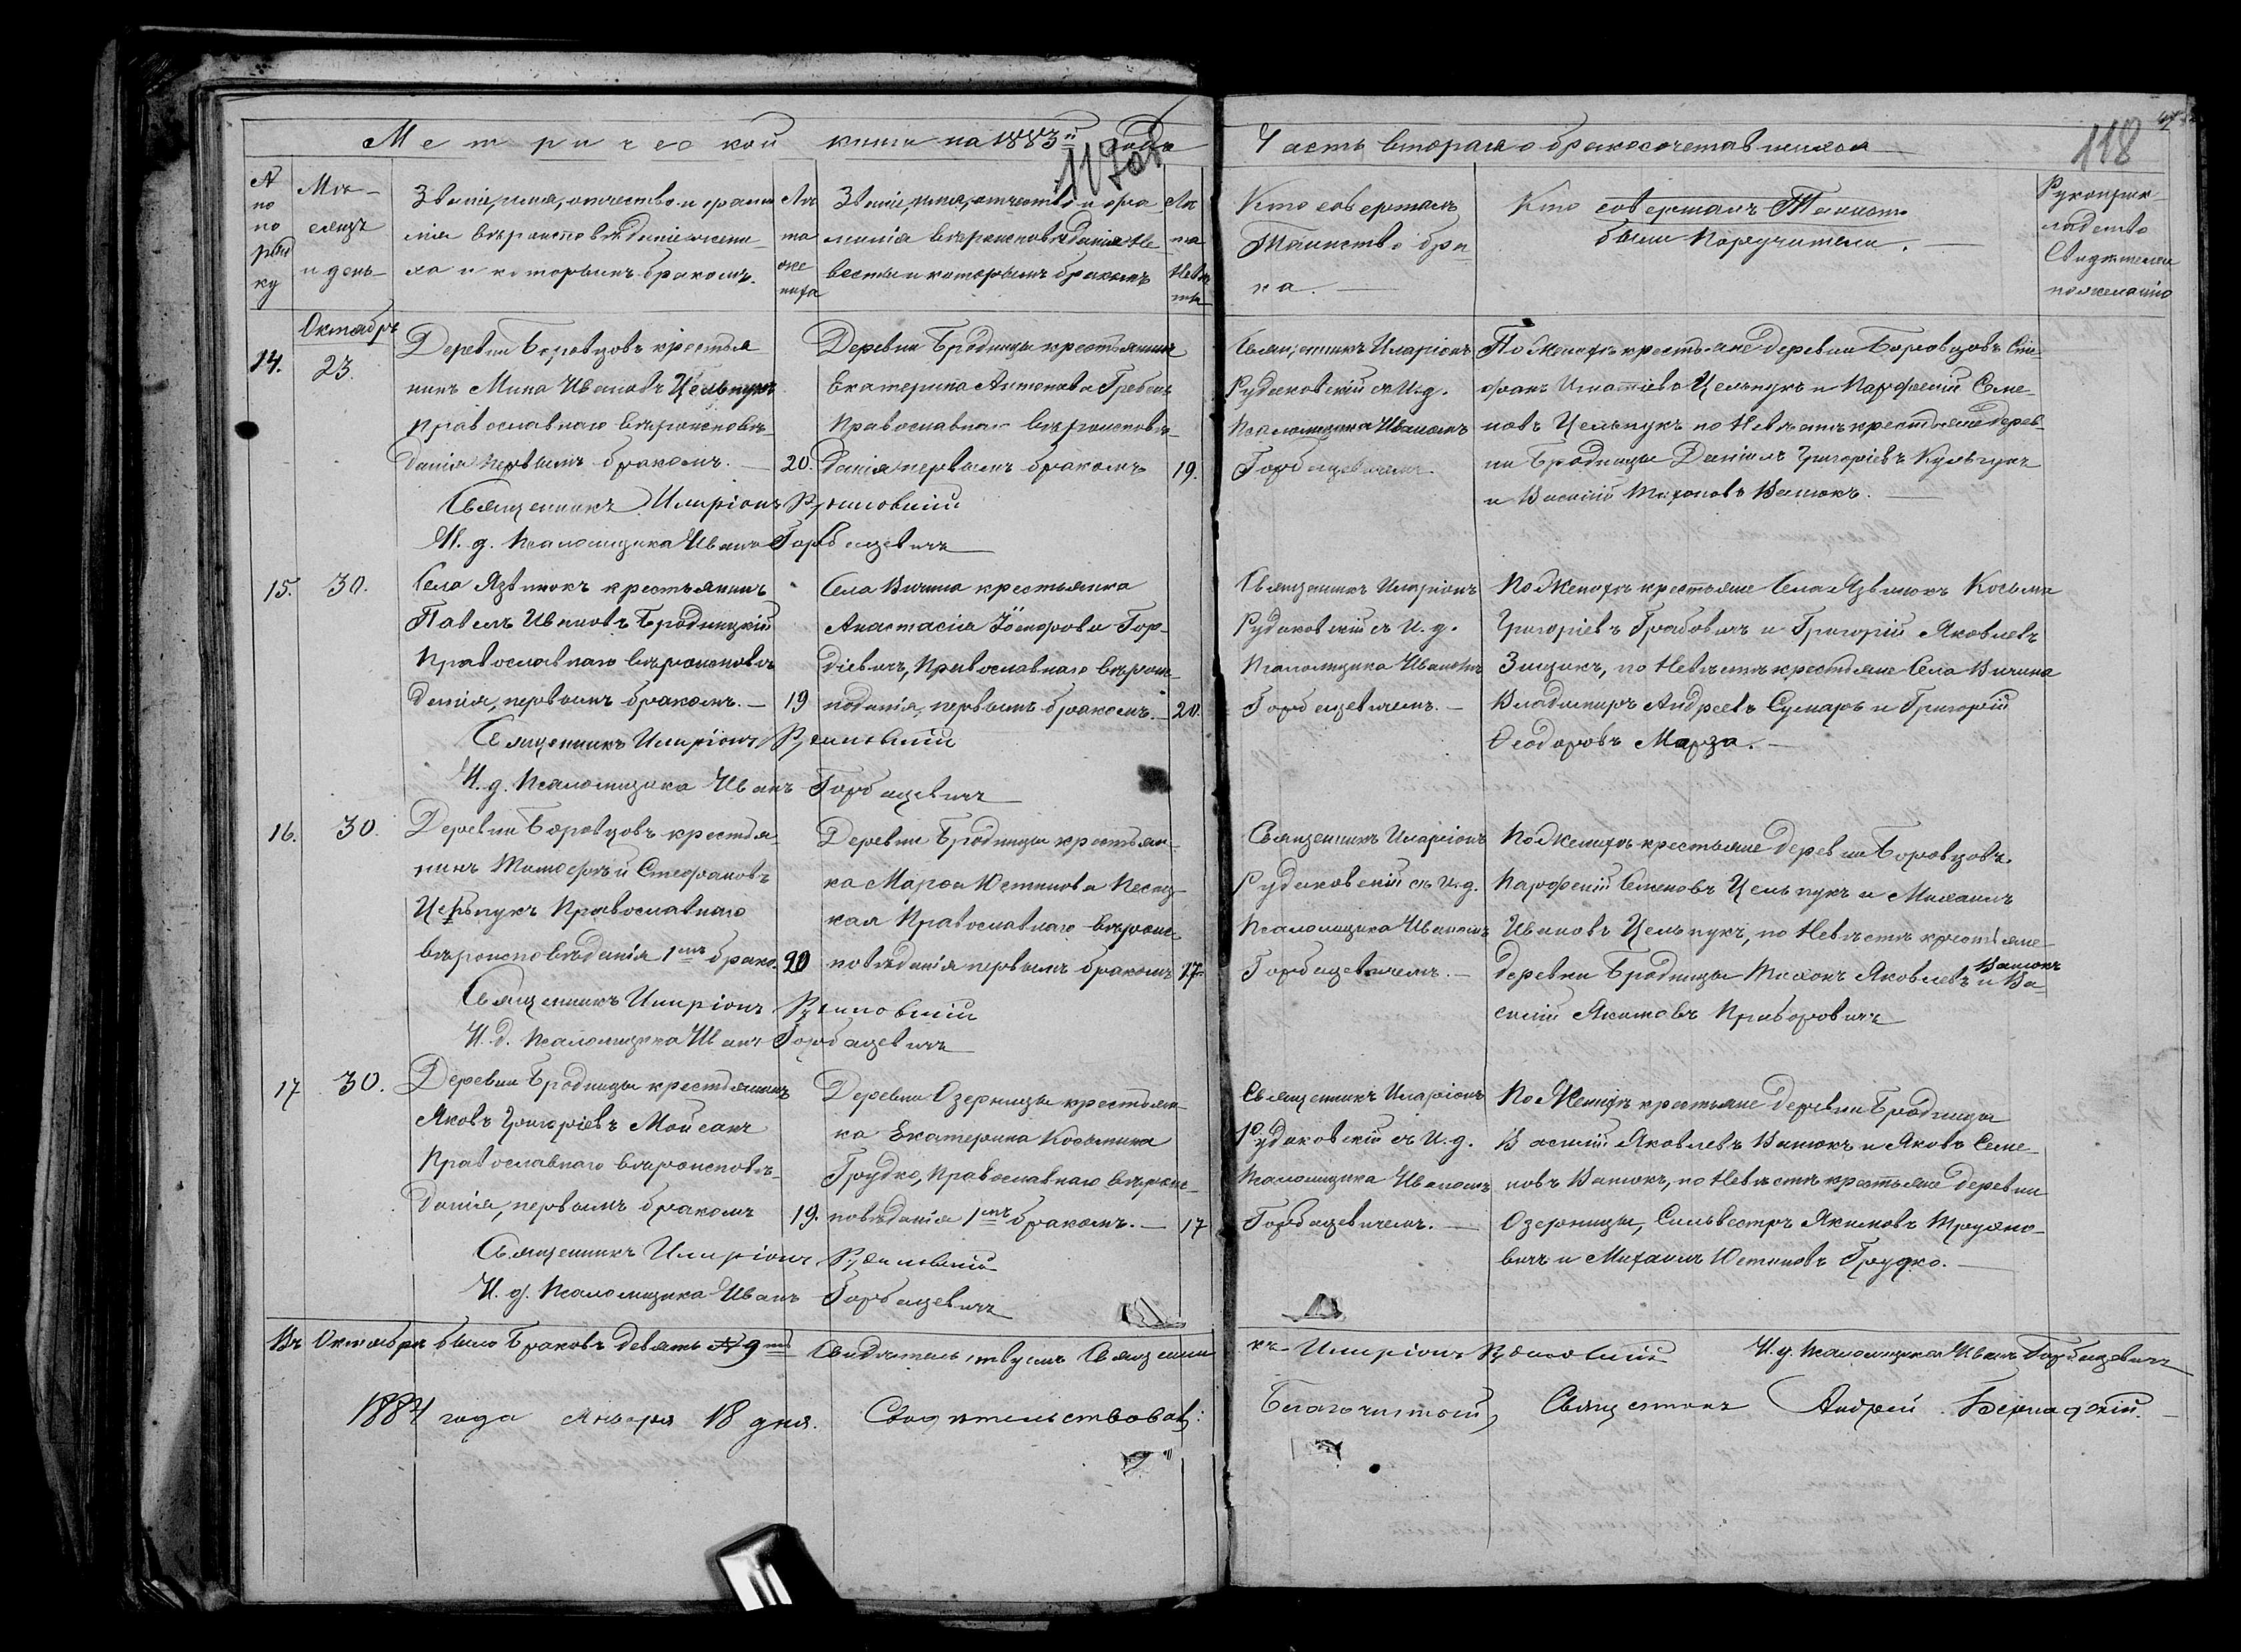 Метрической книги на 1883й года
117об
Часть вторая о бракосочетавшихся
118
№ по порядку
Месяцъ и день
Званіе, имя, отчество и фамилія вѣроисповѣданіе жениха и которымъ бракомъ.
Лѣта жениха
Званіе, имя, отчество и фамилія вѣроисповѣданія Невѣсты и которымъ бракомъ
Лѣта Невѣсты
Кто совершалъ
Таинство бра
ка.
Кто совершалъ Таинст
были Поручители.
Рукоприк
ладство
Свидѣтелей
по желанію
Октябрь
14.
23.
Деревни Боровцовъ крестья
нинъ Мина Ивановъ Цельпукъ
православнаго вѣроисповѣ
данія первымъ бракомъ.
20.
Деревни Бродницы крестьянка
Екатерина Антонова Гребень
Православнаго вѣроисповѣ
данія первымъ бракомъ
19.
Священникъ Иларіонъ
Рудаковскій съ И.д.
Псаломщика Иваномъ
Горбацевичемъ.
По Женихѣ крестьяне деревни Боровцовъ Сте
фанъ Игнатіевъ Цельпукъ и Парфеній Семе
новъ Цельпукъ по Невѣстѣ крестьяне дерев
ни Бродницы Даніилъ Григоріевъ Кульгукъ
и Василій Тихоновъ Ванюкъ.
Священникъ Иларіонъ Рудаковскій
И. д. Псаломщика Иванъ Горбацевичъ
15.
30.
Села Язвинокъ крестьянинъ
Павелъ Ивановъ Бродницкій
Православнаго вѣроисповѣ
данія, первымъ бракомъ.
19
Села Вичина крестьянка
Анастасія Ѳеодорова Гор
діевичъ, Православнаго вѣроис
поданія, первымъ бракомъ.
20.
Священникъ Иларіонъ
Рудаковскій съ И.д.
Псаломщика Иваномъ
Горбацевичемъ.
По Женихѣ крестьяне Села Язвинокъ Косьма
Григоріевъ Грабовичъ и Григорій Яковлевъ
Зицикъ, по Невѣстѣ крестьяне Села Вичина
Владимиръ Андреевъ Сумаръ и Григорій
Ѳеодоровъ Марза.
Священникъ Иларіонъ Рудаковскій
И. д. Псаломщика Иванъ Горбацевичъ
16.
30.
Деревни Боровцовъ крестья
нинъ Тимоѳей Стефановъ
Цельпукъ Православнаго
вѣроисповѣданія 1мъ брако.
20
Деревни Бродницы крестьян
ка Марѳа Юстинова Песец
кая Православнаго вѣроис
повѣданія первымъ бракомъ
17.
Священникъ Иларіонъ
Рудаковскій съ И.д.
Псаломщика Иваномъ
Горбацевичемъ.
По Женихѣ крестьяне деревни Боровцовъ
Парфеній Семеновъ Цельпукъ и Михаилъ
Ивановъ Цельпукъ, по Невѣстѣ крестьяне
деревни Бродницы Тихонъ Яковлевъ Ванюкъ и Ва
силій Якимовъ Приборовичъ
Священникъ Иларіонъ Рудаковскій
И. д. Псаломщика Иванъ Горбацевичъ
17
30.
Деревни Бродницы крестьянинъ
Яковъ Григоріевъ Мойсакъ
Православнаго вѣроисповѣ
данія, первымъ бракомъ
19.
Деревни Озерницы крестьян
ка Екатерина Косьмина
Грудко, Православнаго вѣроис
повѣданія 1мъ бракомъ.
17
Священникъ Иларіонъ
Рудаковскій съ И.д.
Псаломщика Иваномъ
Горбацевичемъ.
По Женихѣ крестьяне деревни Бродницы
Василій Яковлевъ Ванюкъ и Яковъ Семе
новъ Ванюкъ, по Невѣстѣ крестьяне деревни
Озерницы, Сильвестръ Якимовъ Трухно
вичъ и Михаилъ Юстиновъ Грудко.
Священникъ Иларіонъ Рудаковскій
И. д. Псаломщика Иванъ Горбацевичъ
Въ Октябрѣ было Браковъ девять № 9ть Свидѣтельствуемъ Священни
къ Иларіонъ Рудаковскій И. д. Псаломщика Иванъ Горбацевичъ
1884 года Января 18 дня. Свидѣтельствовалъ: Благочинный, Священникъ Андрей